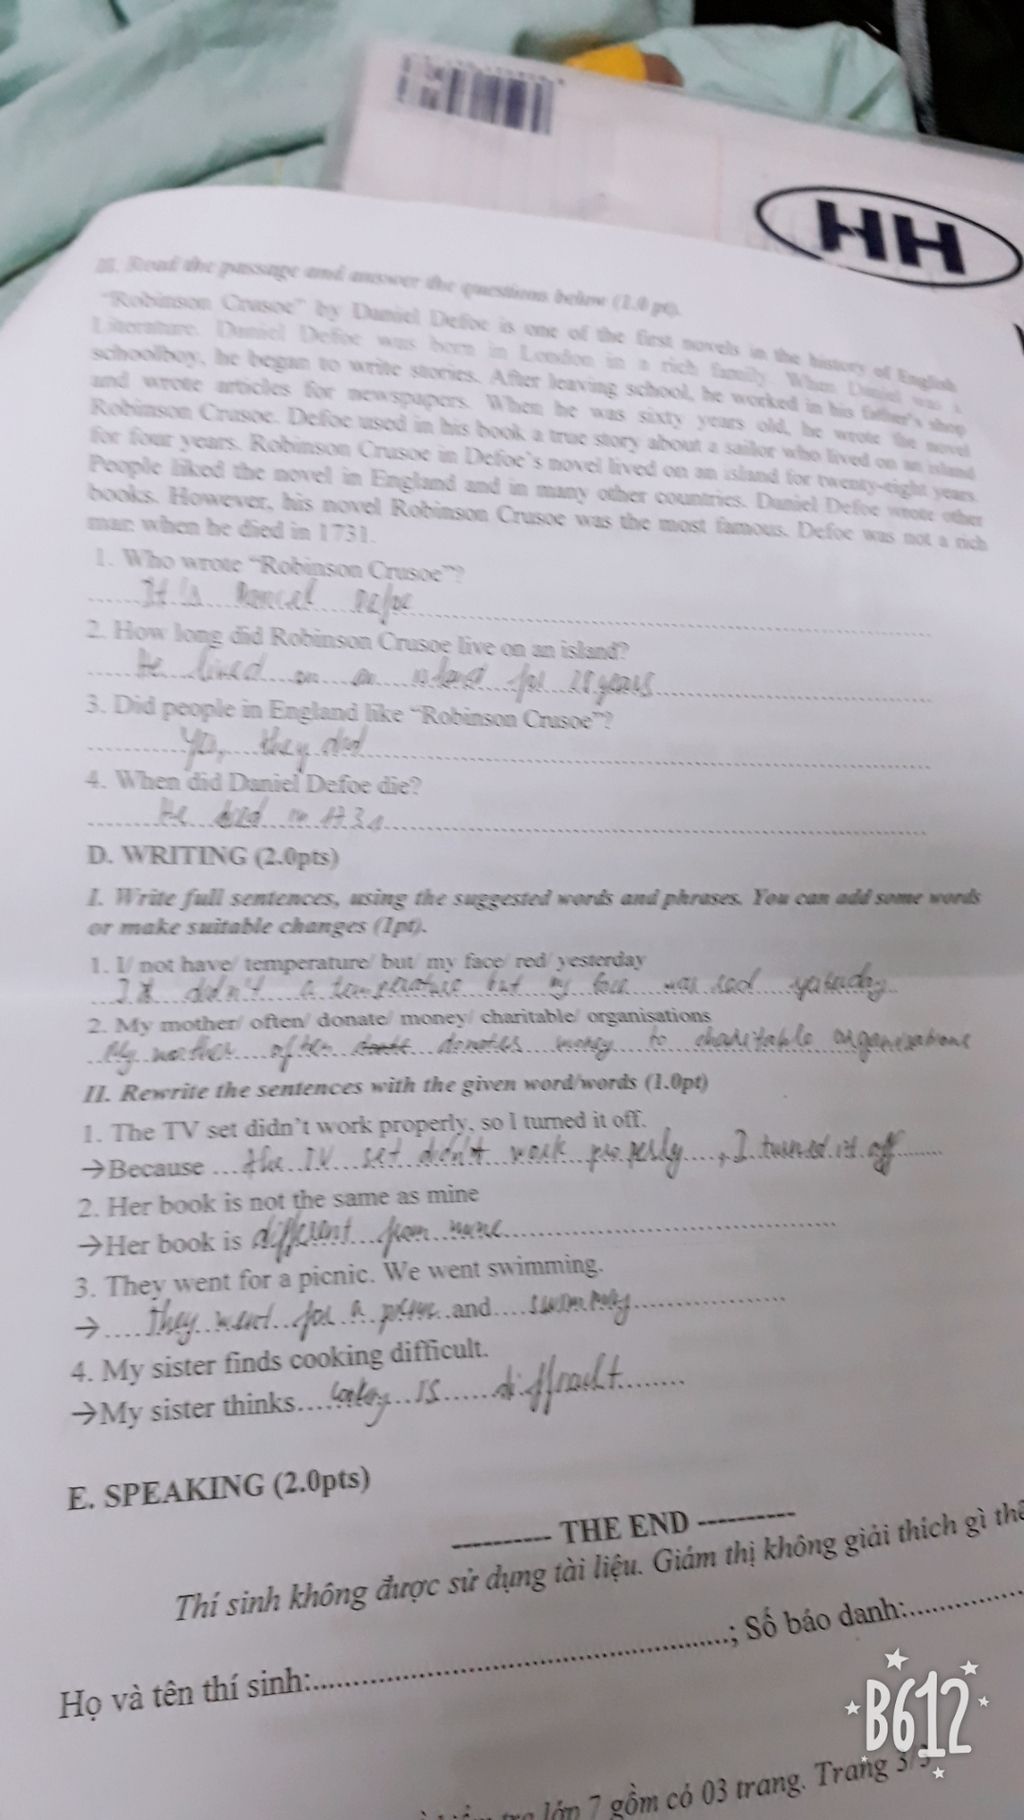 HH
III. Read the passage and answer the questions below (1.0 pt).
"Robinson Crusoe" by Daniel Defoe is one of the first novels in the history of English
Literature. Daniel Defoe was born in London in a rich family. When Daniel was a
schoolboy, he began to write stories. After leaving school, he worked in his father's shop
and wrote articles for newspapers. When he was sixty years old, he wrote the novel
Robinson Crusoe. Defoe used in his book a true story about a sailor who lived on an island
for four years. Robinson Crusoe in Defoe's novel lived on an island for twenty-eight years.
People liked the novel in England and in many other countries. Daniel Defoe wrote other
books. However, his novel Robinson Crusoe was the most famous. Defoe was not a rich
man when he died in 1731.
1. Who wrote "Robinson Crusoe"?
It's Daniel Defoe
2. How long did Robinson Crusoe live on an island?
He lived on an island for 28 years
3. Did people in England like "Robinson Crusoe"?
Yes, they did
4. When did Daniel Defoe die?
He died in 1731
D. WRITING (2.0pts)
I. Write full sentences, using the suggested words and phrases. You can add some words
or make suitable changes (1pt).
1. I/ not have/ temperature/ but/ my face/ red/ yesterday
I didn't a temperature but my face was red yesterday
2. My mother/ often/ donate/ money/ charitable/ organisations
My mother often donates money to charitable organisations
II. Rewrite the sentences with the given word/words (1.0pt)
1. The TV set didn't work properly, so I turned it off.
→Because the TV set didn't work properly, I turned it off
2. Her book is not the same as mine
→Her book is different from mine
3. They went for a picnic. We went swimming.
→ They went for a picnic and swimming
4. My sister finds cooking difficult.
→My sister thinks is difficult
E. SPEAKING (2.0pts)
---------- THE END ----------
Thí sinh không được sử dụng tài liệu. Giám thị không giải thích gì
Họ và tên thí sinh:..........; Số báo danh:..........
B612
lớp 7 gồm có 03 trang. Trang 3/3